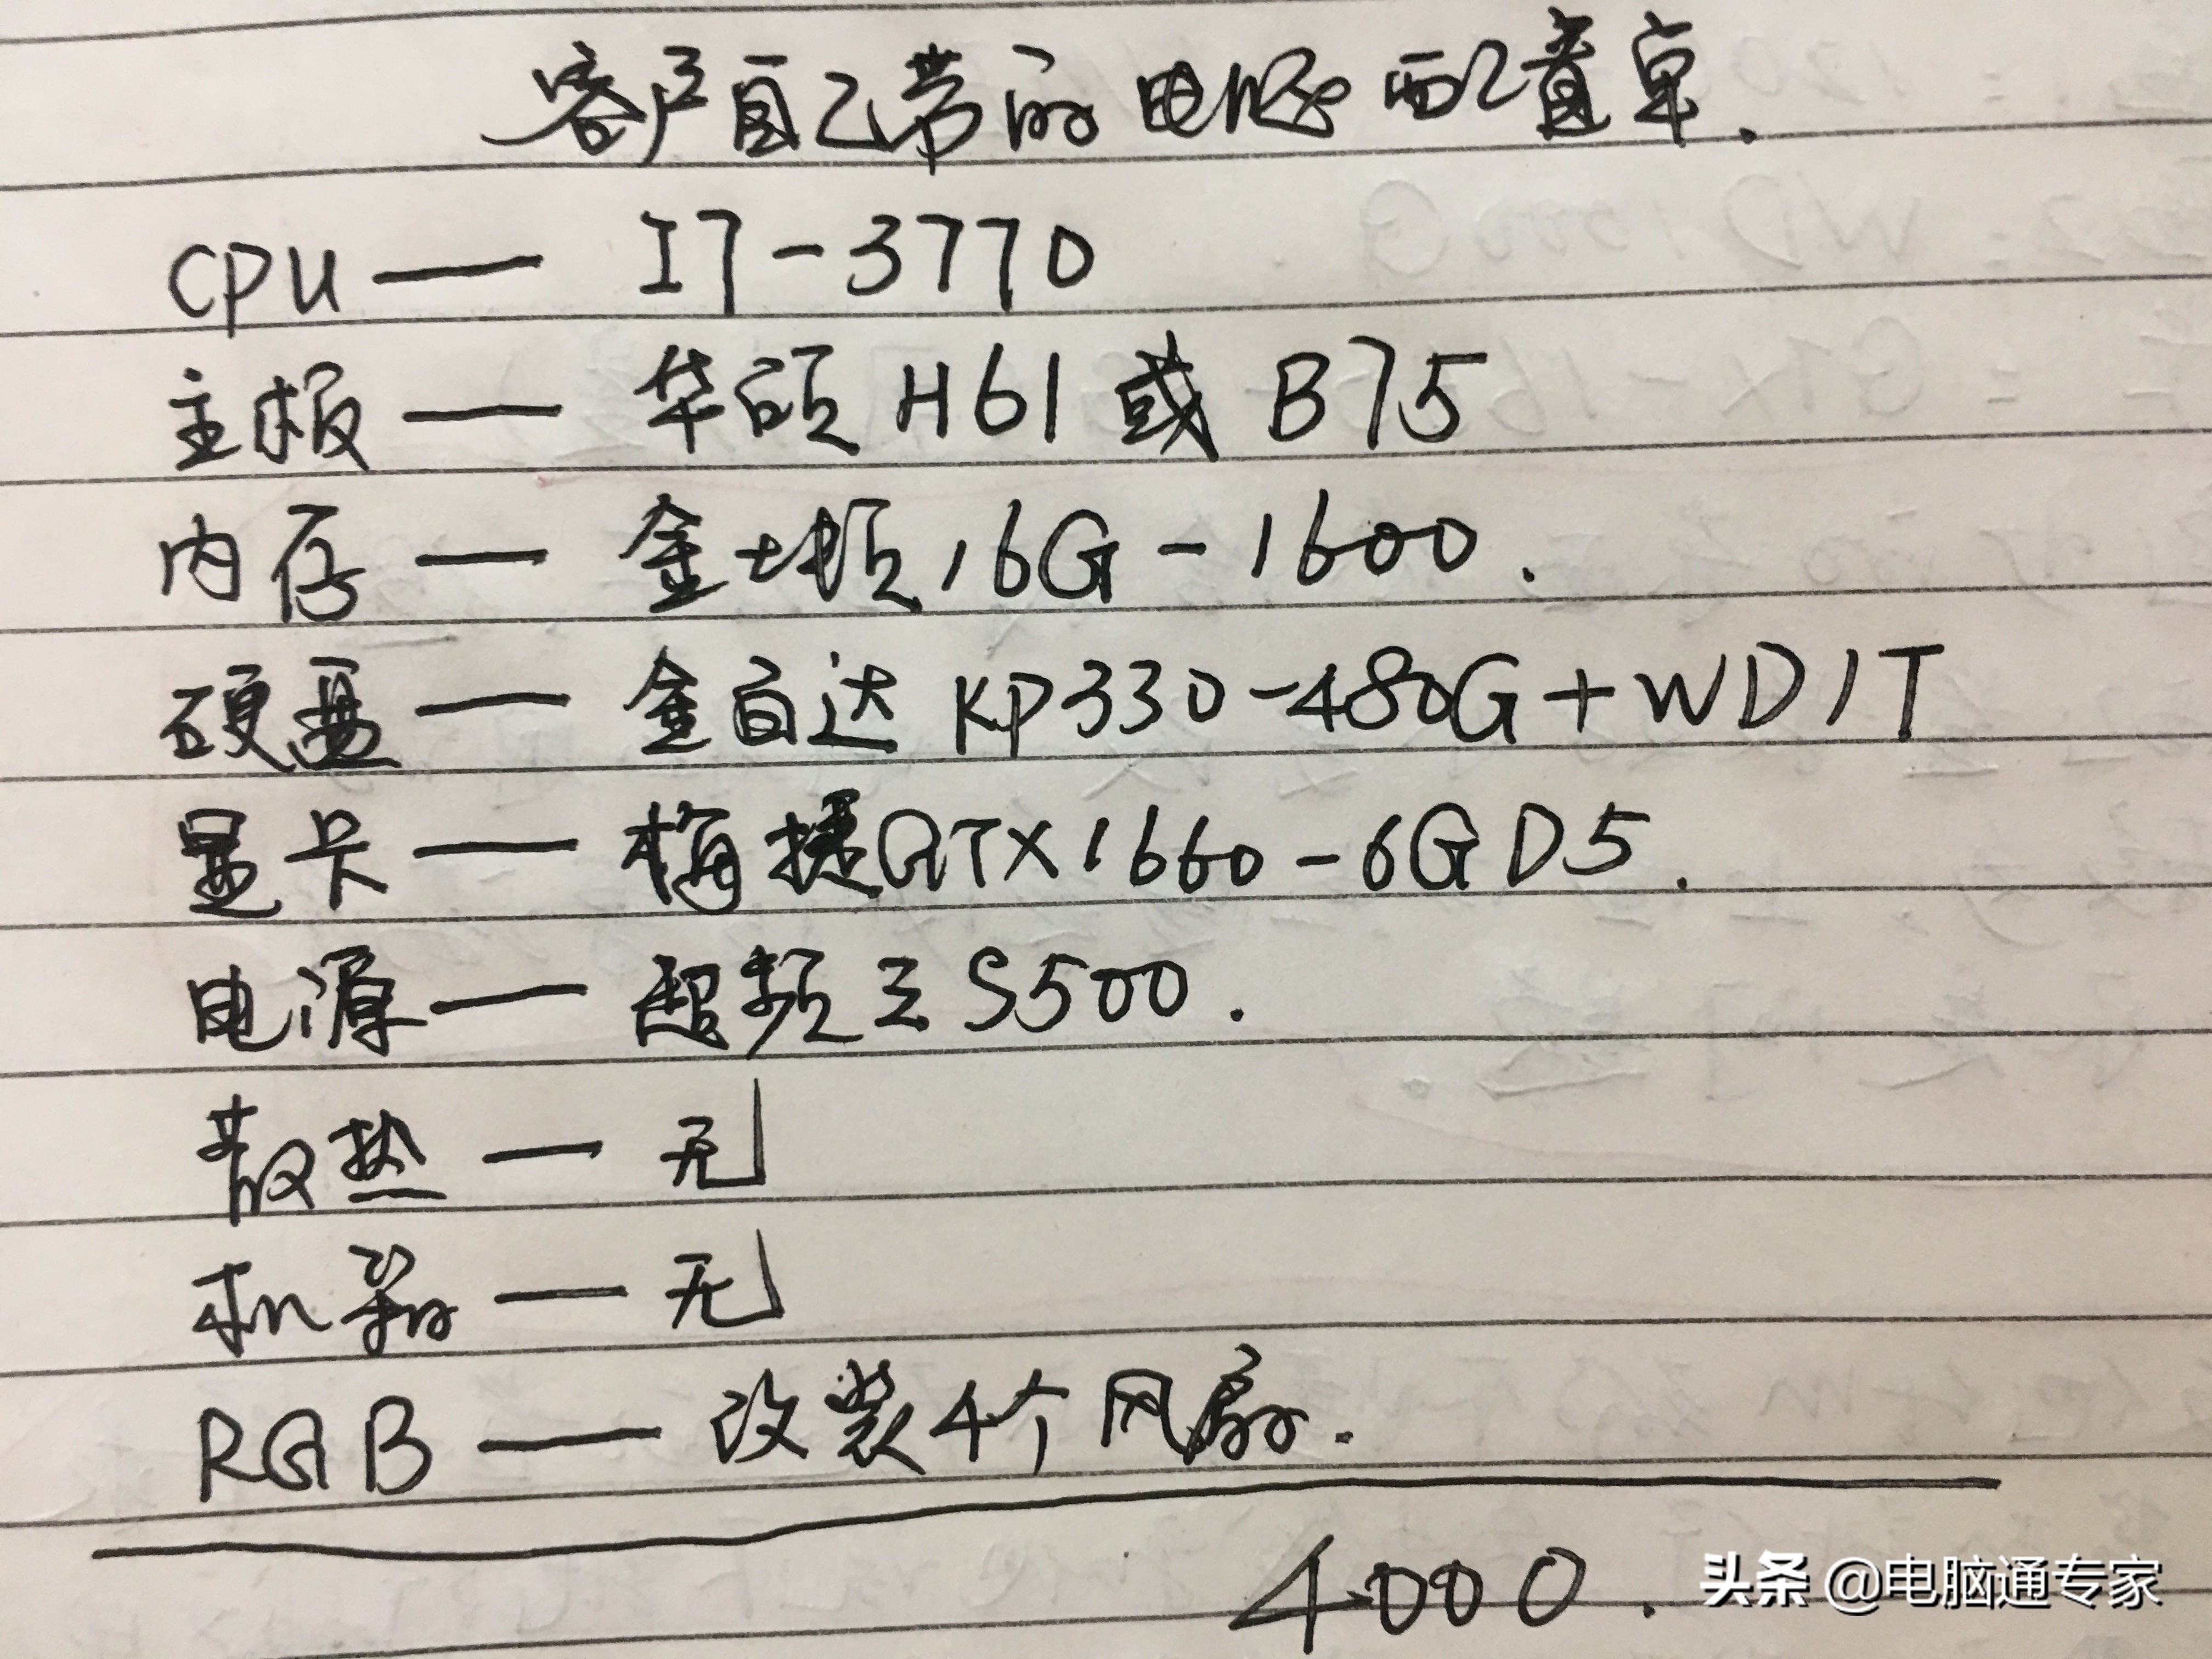 客户自己带的电脑配置单.
CPU — I7-3770
主板 — 华硕 H61 或 B75
内存 — 金士顿 16G-1600.
硬盘 — 金百达 KP330-480G+WD1T
显卡 — 梅捷GTX1660-6GD5.
电源 — 超频三S500.
散热 — 无
机箱 — 无
RGB — 改装4个风扇.
4000.
头条 @电脑通专家